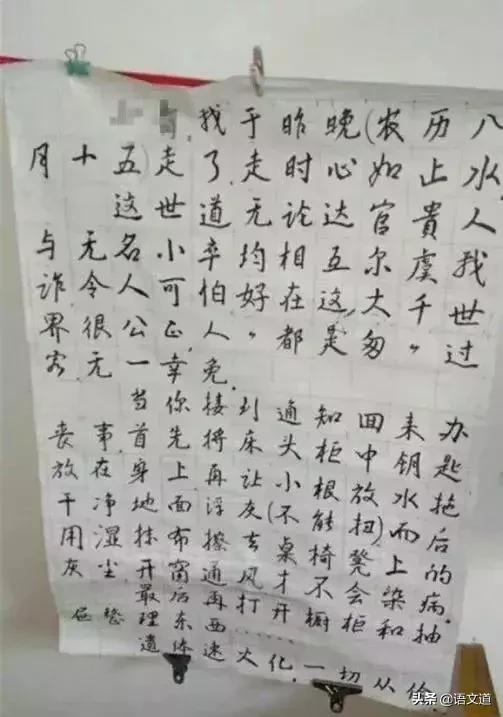 找于昨晚(农历八
月十五)走了,走时心如止水,
这世道无论达官贵人
与无名小卒均相互尔虞我
诈令人可怕,好在这大千世
界很公正,人〃都是匆〃过
客无一幸免.
当你接到通知回来办
丧事首先将床头柜中钥匙
放在身上再让小根放水拖
干净地面浮灰(不能扭)而后
用湿抹布擦去桌椅凳上的
灰尘开窗通风才不会染病.
最后再打开橱柜和抽
屉整理东西……
遗体速火化,一切从俭.
头条 @语文道